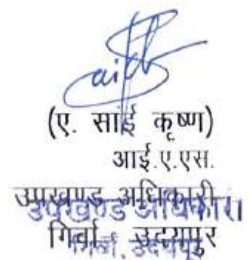 (ए. साई कृष्ण)
आई.ए.एस.
उपखण्ड अधिकारी
गिर्वा, उदयपुर
उपखण्ड अधिकारी
गिर्वा, उदयपुर